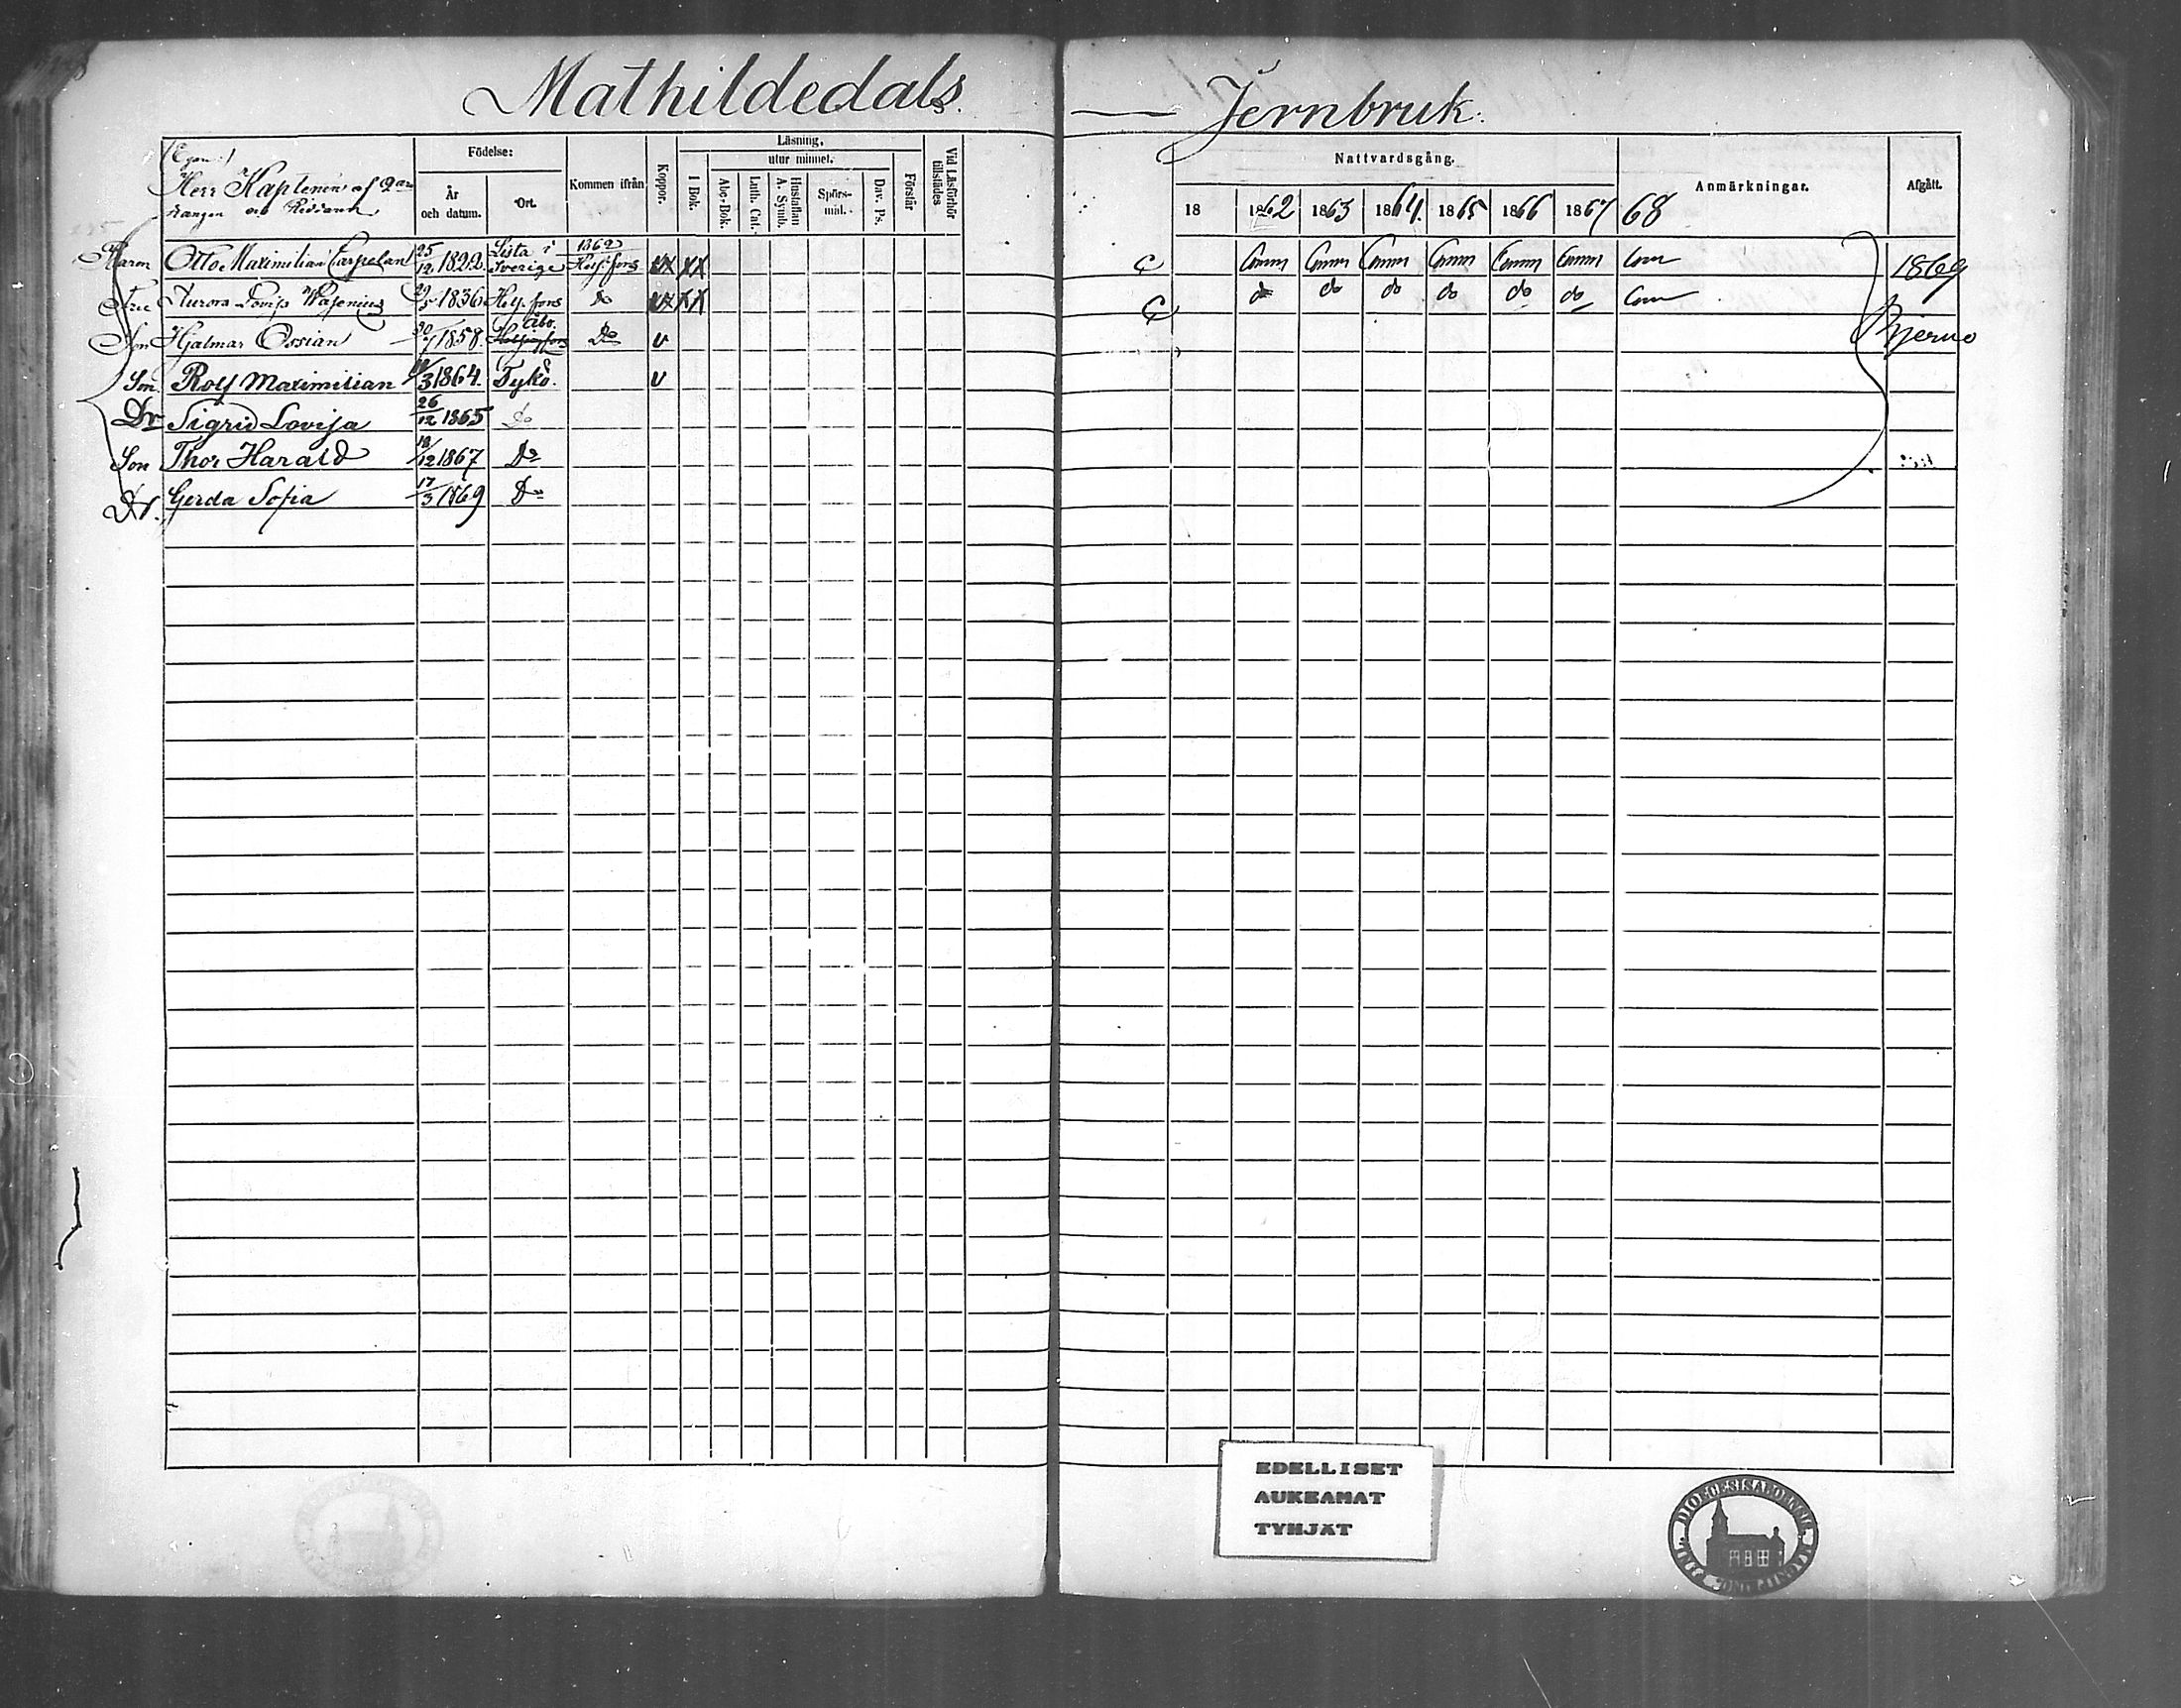 Mathildedals — Jernbruk.
Födelse: Läsning, Nattvardsgång.
utur minnet.
Herr Kaptenen af
rangen och Riddaren
År och datum. Ort. Kommen ifrån Koppor. I Bok. Abc-Bok. Luth. Cat. Hustaflan A. Symb. Spörs-mål. Dav. Ps. Förstår Vid Läsförhör tillstädes
18 1862 1863 1864. 1865 1866 1867 68 Anmärkningar. Afgått.
Baron Otto Maximilian Carpelan 25/12 1822. Sista i Sverige 1862 Hels:fors vx xx C Comm Comm Comm Comm Comm Comm Com 1869
Fru Aurora Lovisa Wasenius 29/5 1836 Hels:fors do vx xx C do do do do do do Com
Son Hjalmar Ossian 30/7 1858. Åbo. Helsingfors Do v Bjerno
Son. Rolf Maximilian /3 1864. Tykö. v
Dr Sigrid Lovisa 26/12 1865 Do
Son Thor Harald 18/12 1867 Do
Dr. Gerda Sofia 17/3 1869 Do
EDELLISET
AUKEAMAT
TYHJÄT